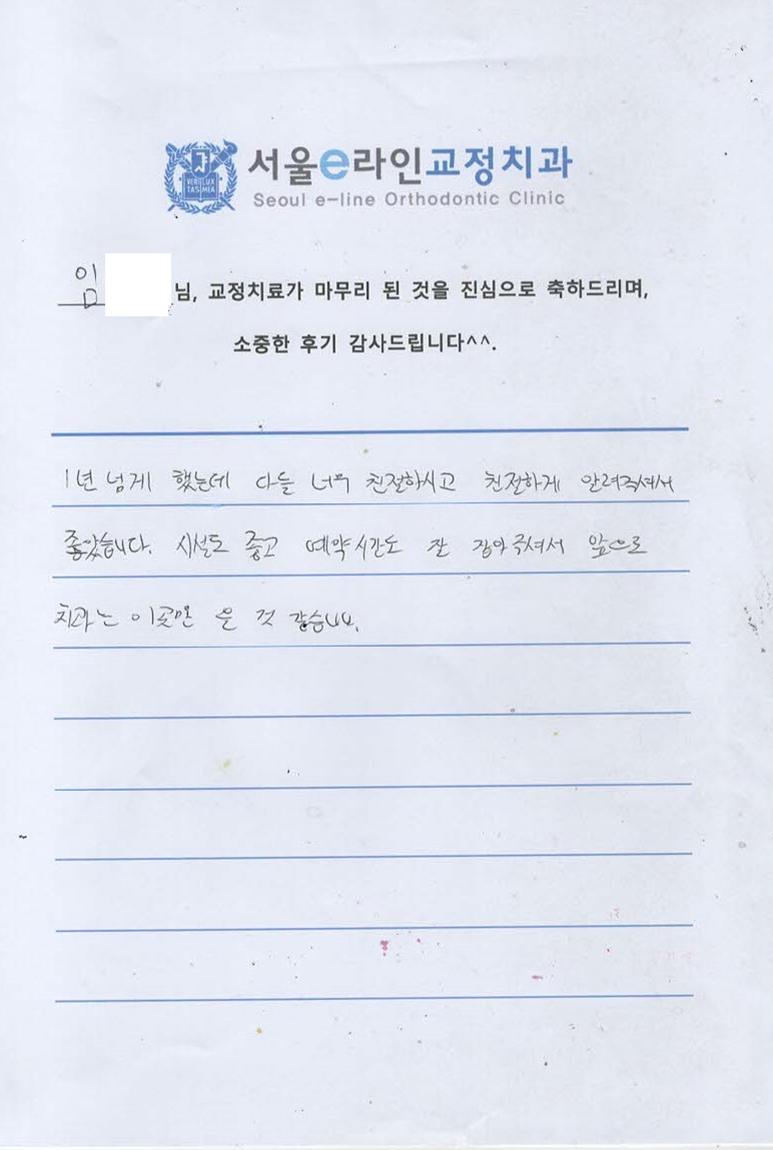 서울e라인교정치과
Seoul e-line Orthodontic Clinic
VERI LUX TAS MEA
님, 교정치료가 마무리 된 것을 진심으로 축하드리며,
소중한 후기 감사드립니다^^.
1년 넘게 했는데 다들 너무 친절하시고 친절하게 알려주셔서
좋았습니다. 시설도 좋고 예약시간도 잘 잡아주셔서 앞으로
치과는 이곳만 올 것 같습니다.